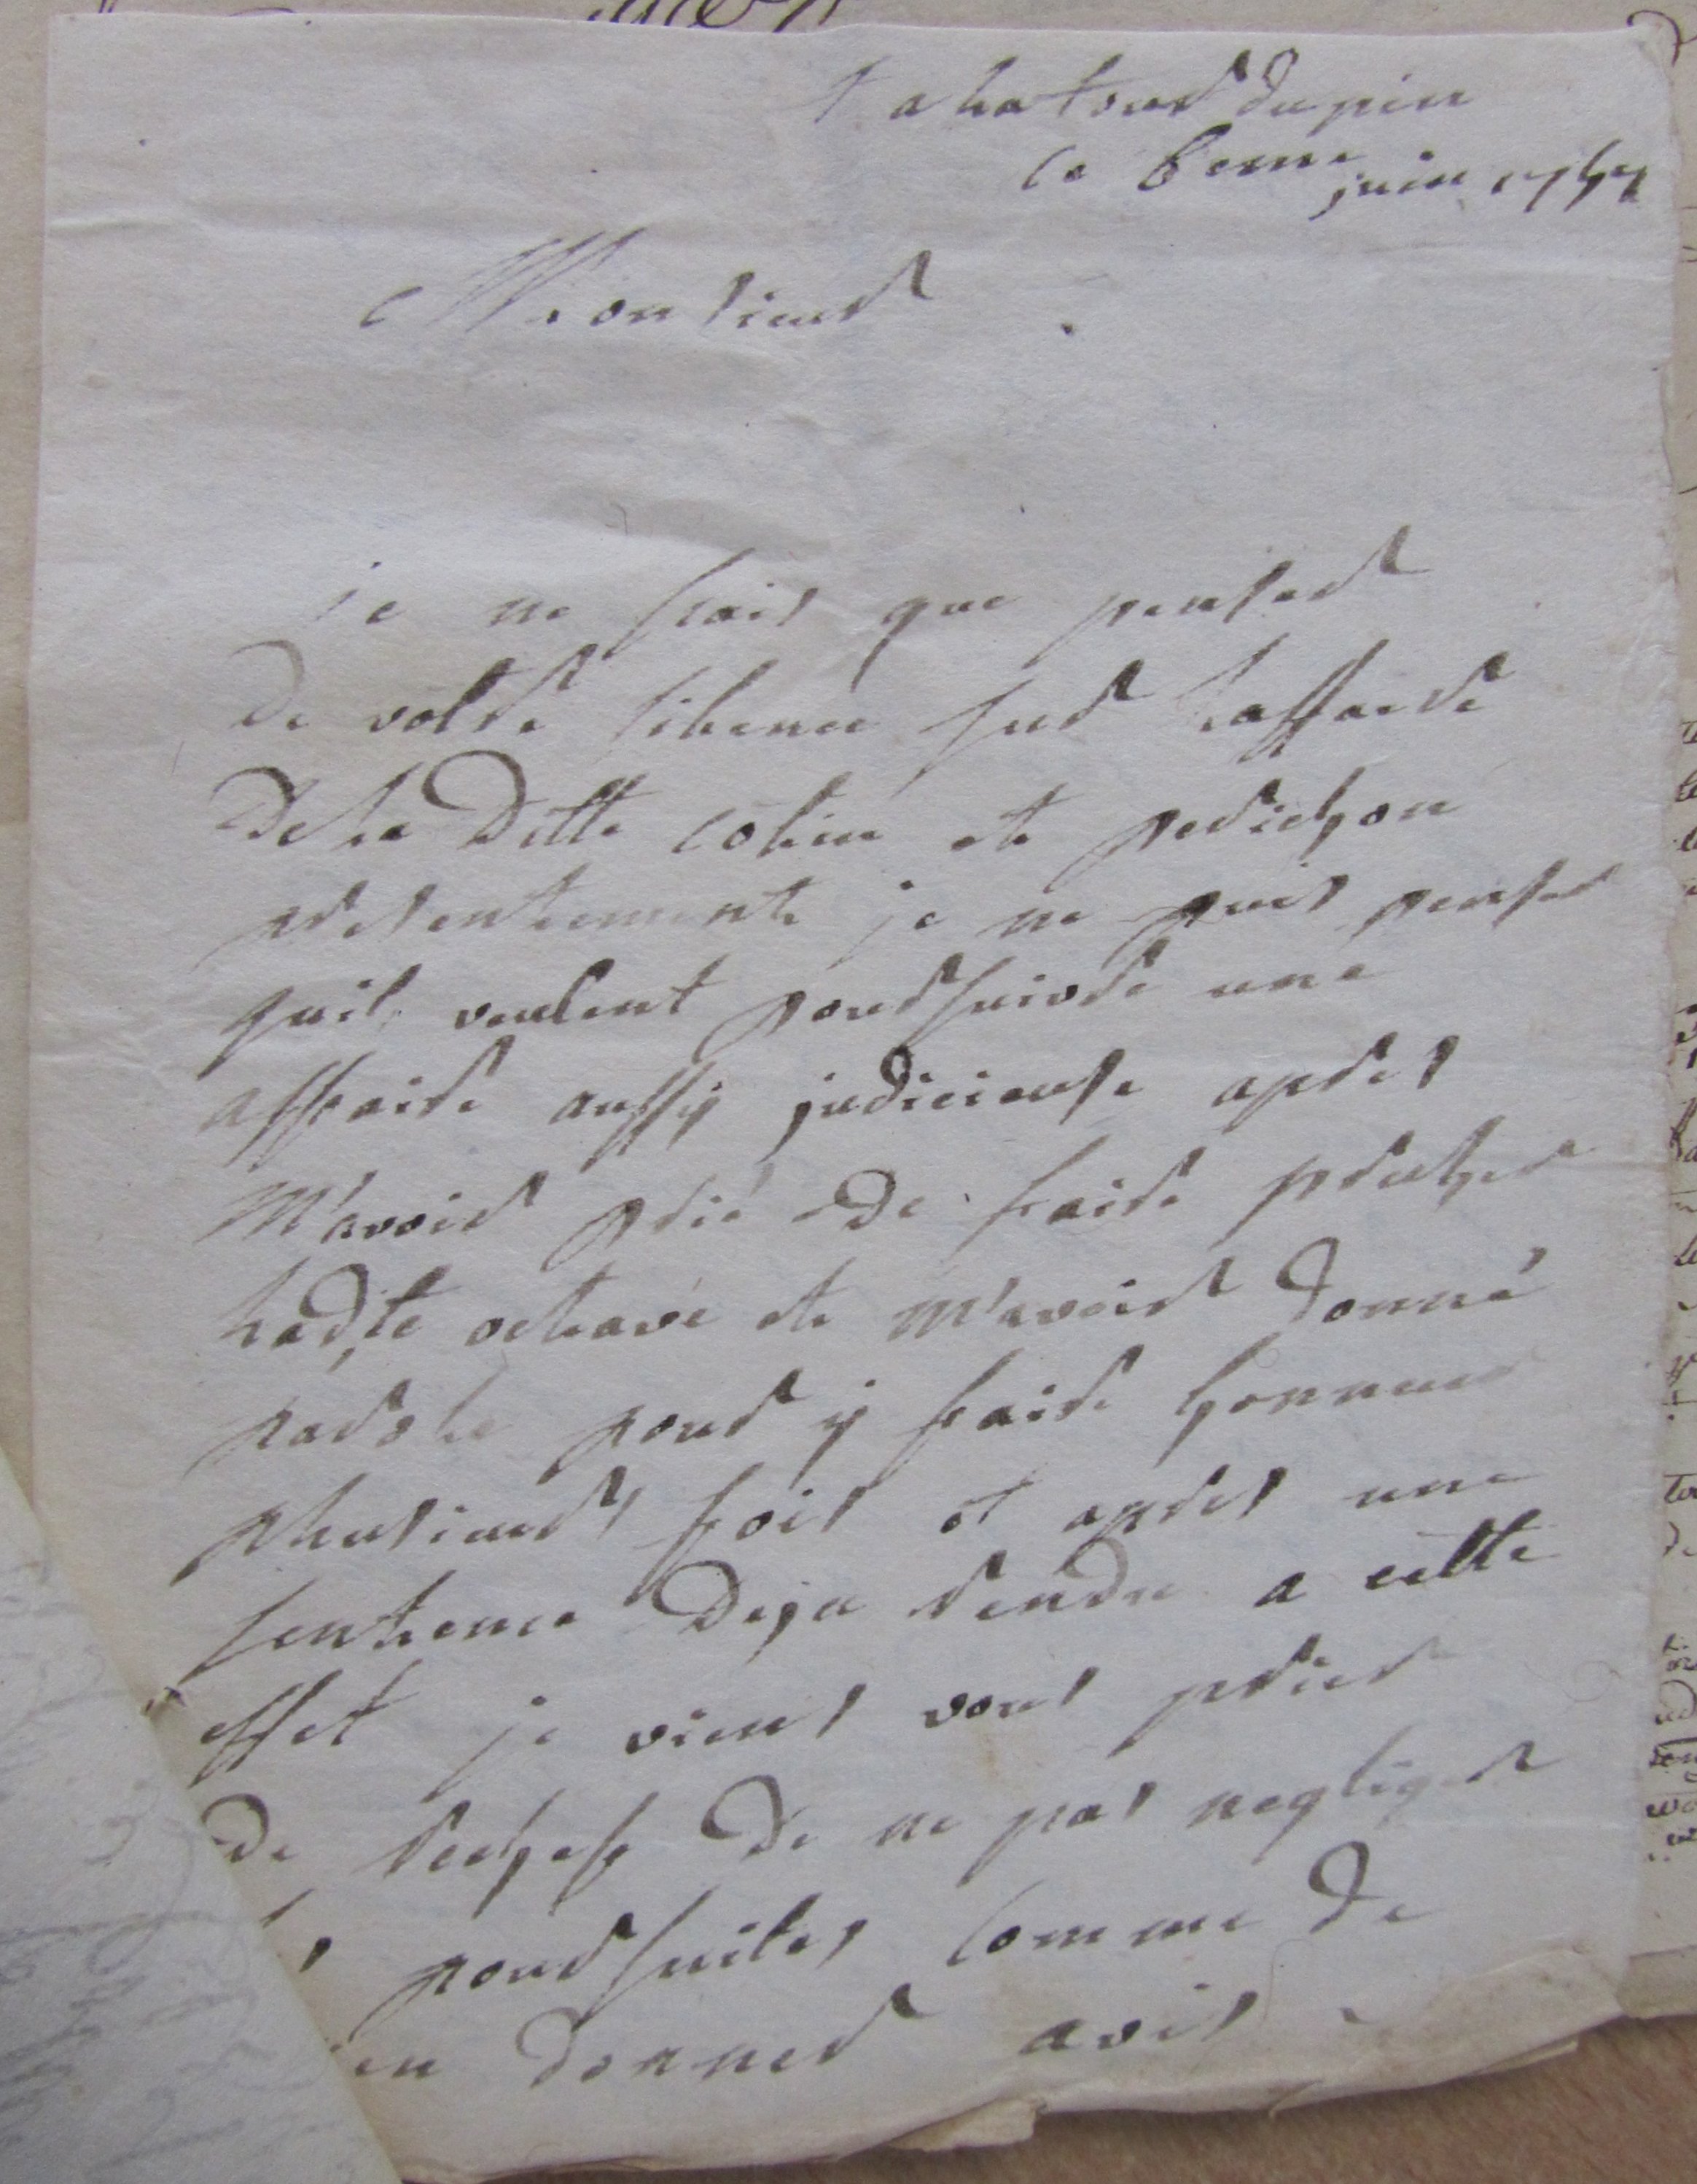 a la tour dupin
le 6eme juin 1767
Monsieur
je ne scais que penser
de votre silence sur laffaire
de la Dette colin et perichon
presentement je ne puis penser
quil veulent poursuivre une
affaire aussy judicieuse apres
M'avoir prié de faire precher
ladte octave et m'avoir donné
parole pour y faire honneur
plusieurs fois et apres une
sentence Deja rendu a cette
effet je viens vous prier
de rechef de ne pas negliger
poursuites comme de
en donner avis